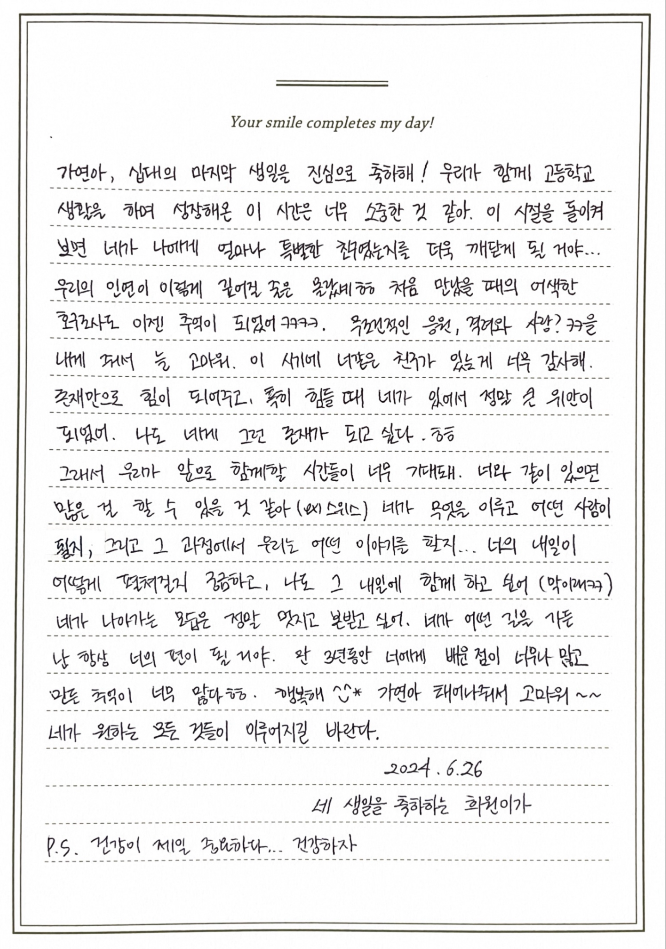 Your smile completes my day!
가연아, 십대의 마지막 생일을 진심으로 축하해! 우리가 함께 고등학교
생활을 하며 성장해온 이 시간은 너무 소중한 것 같아. 이 시절을 돌이켜
보면 네가 나에게 얼마나 특별한 친구였는지를 더욱 깨닫게 될 거야...
우리의 인연이 이렇게 길어질 줄은 몰랐네ㅎㅎ 처음 만났을 때의 어색한
호구조사도 이젠 추억이 되었어ㅋㅋㅋㅋ. 무조건적인 응원, 격려와 사랑?ㅋㅋ을
내게 줘서 늘 고마워. 이 시기에 너같은 친구가 있는게 너무 감사해.
존재만으로 힘이 되어주고, 특히 힘들 때 네가 있어서 정말 큰 위안이
되었어. 나도 네게 그런 존재가 되고 싶다.ㅎㅎ
그래서 우리가 앞으로 함께할 시간들이 너무 기대돼. 너와 같이 있으면
많은 걸 할 수 있을 것 같아 (ex 스위스) 네가 무엇을 이루고 어떤 사람이
될지, 그리고 그 과정에서 우리는 어떤 이야기를 할지... 너의 내일이
어떻게 펼쳐질지 궁금하고, 나도 그 내일에 함께 하고 싶어 (막이래ㅋㅋ)
네가 나아가는 모습은 정말 멋지고 본받고 싶어. 네가 어떤 길을 가든
난 항상 너의 편이 될 거야. 한 3년동안 너에게 배운 점이 너무나 많고
만든 추억이 너무 많다ㅎㅎ. 행복해 ^^* 가연아 태어나줘서 고마워~~
네가 원하는 모든 것들이 이루어지길 바란다.
2024.6.26
네 생일을 축하하는 희원이가
P.S. 건강이 제일 중요하다... 건강하자